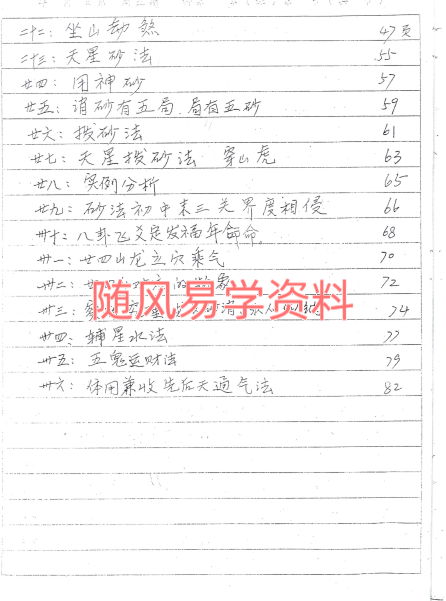 二十二：坐山劫煞 47页
二十三：天星砂法 55
廿四：用神砂 57
廿五：消砂有五局.局有五砂 59
廿六：拨砂法 61
廿七：天星拨砂法 穿山虎 63
廿八：实例分析 65
廿九：砂法初中末三 界度相侵 66
卅十：八卦飞爻定发福年命 68
卅一：廿四山龙立穴乘气 70
卅二： 72
随风易学资料
卅三： 74
卅四：辅星水法 77
卅五：五鬼运财法 79
卅六：体用兼收先后天通气法 82